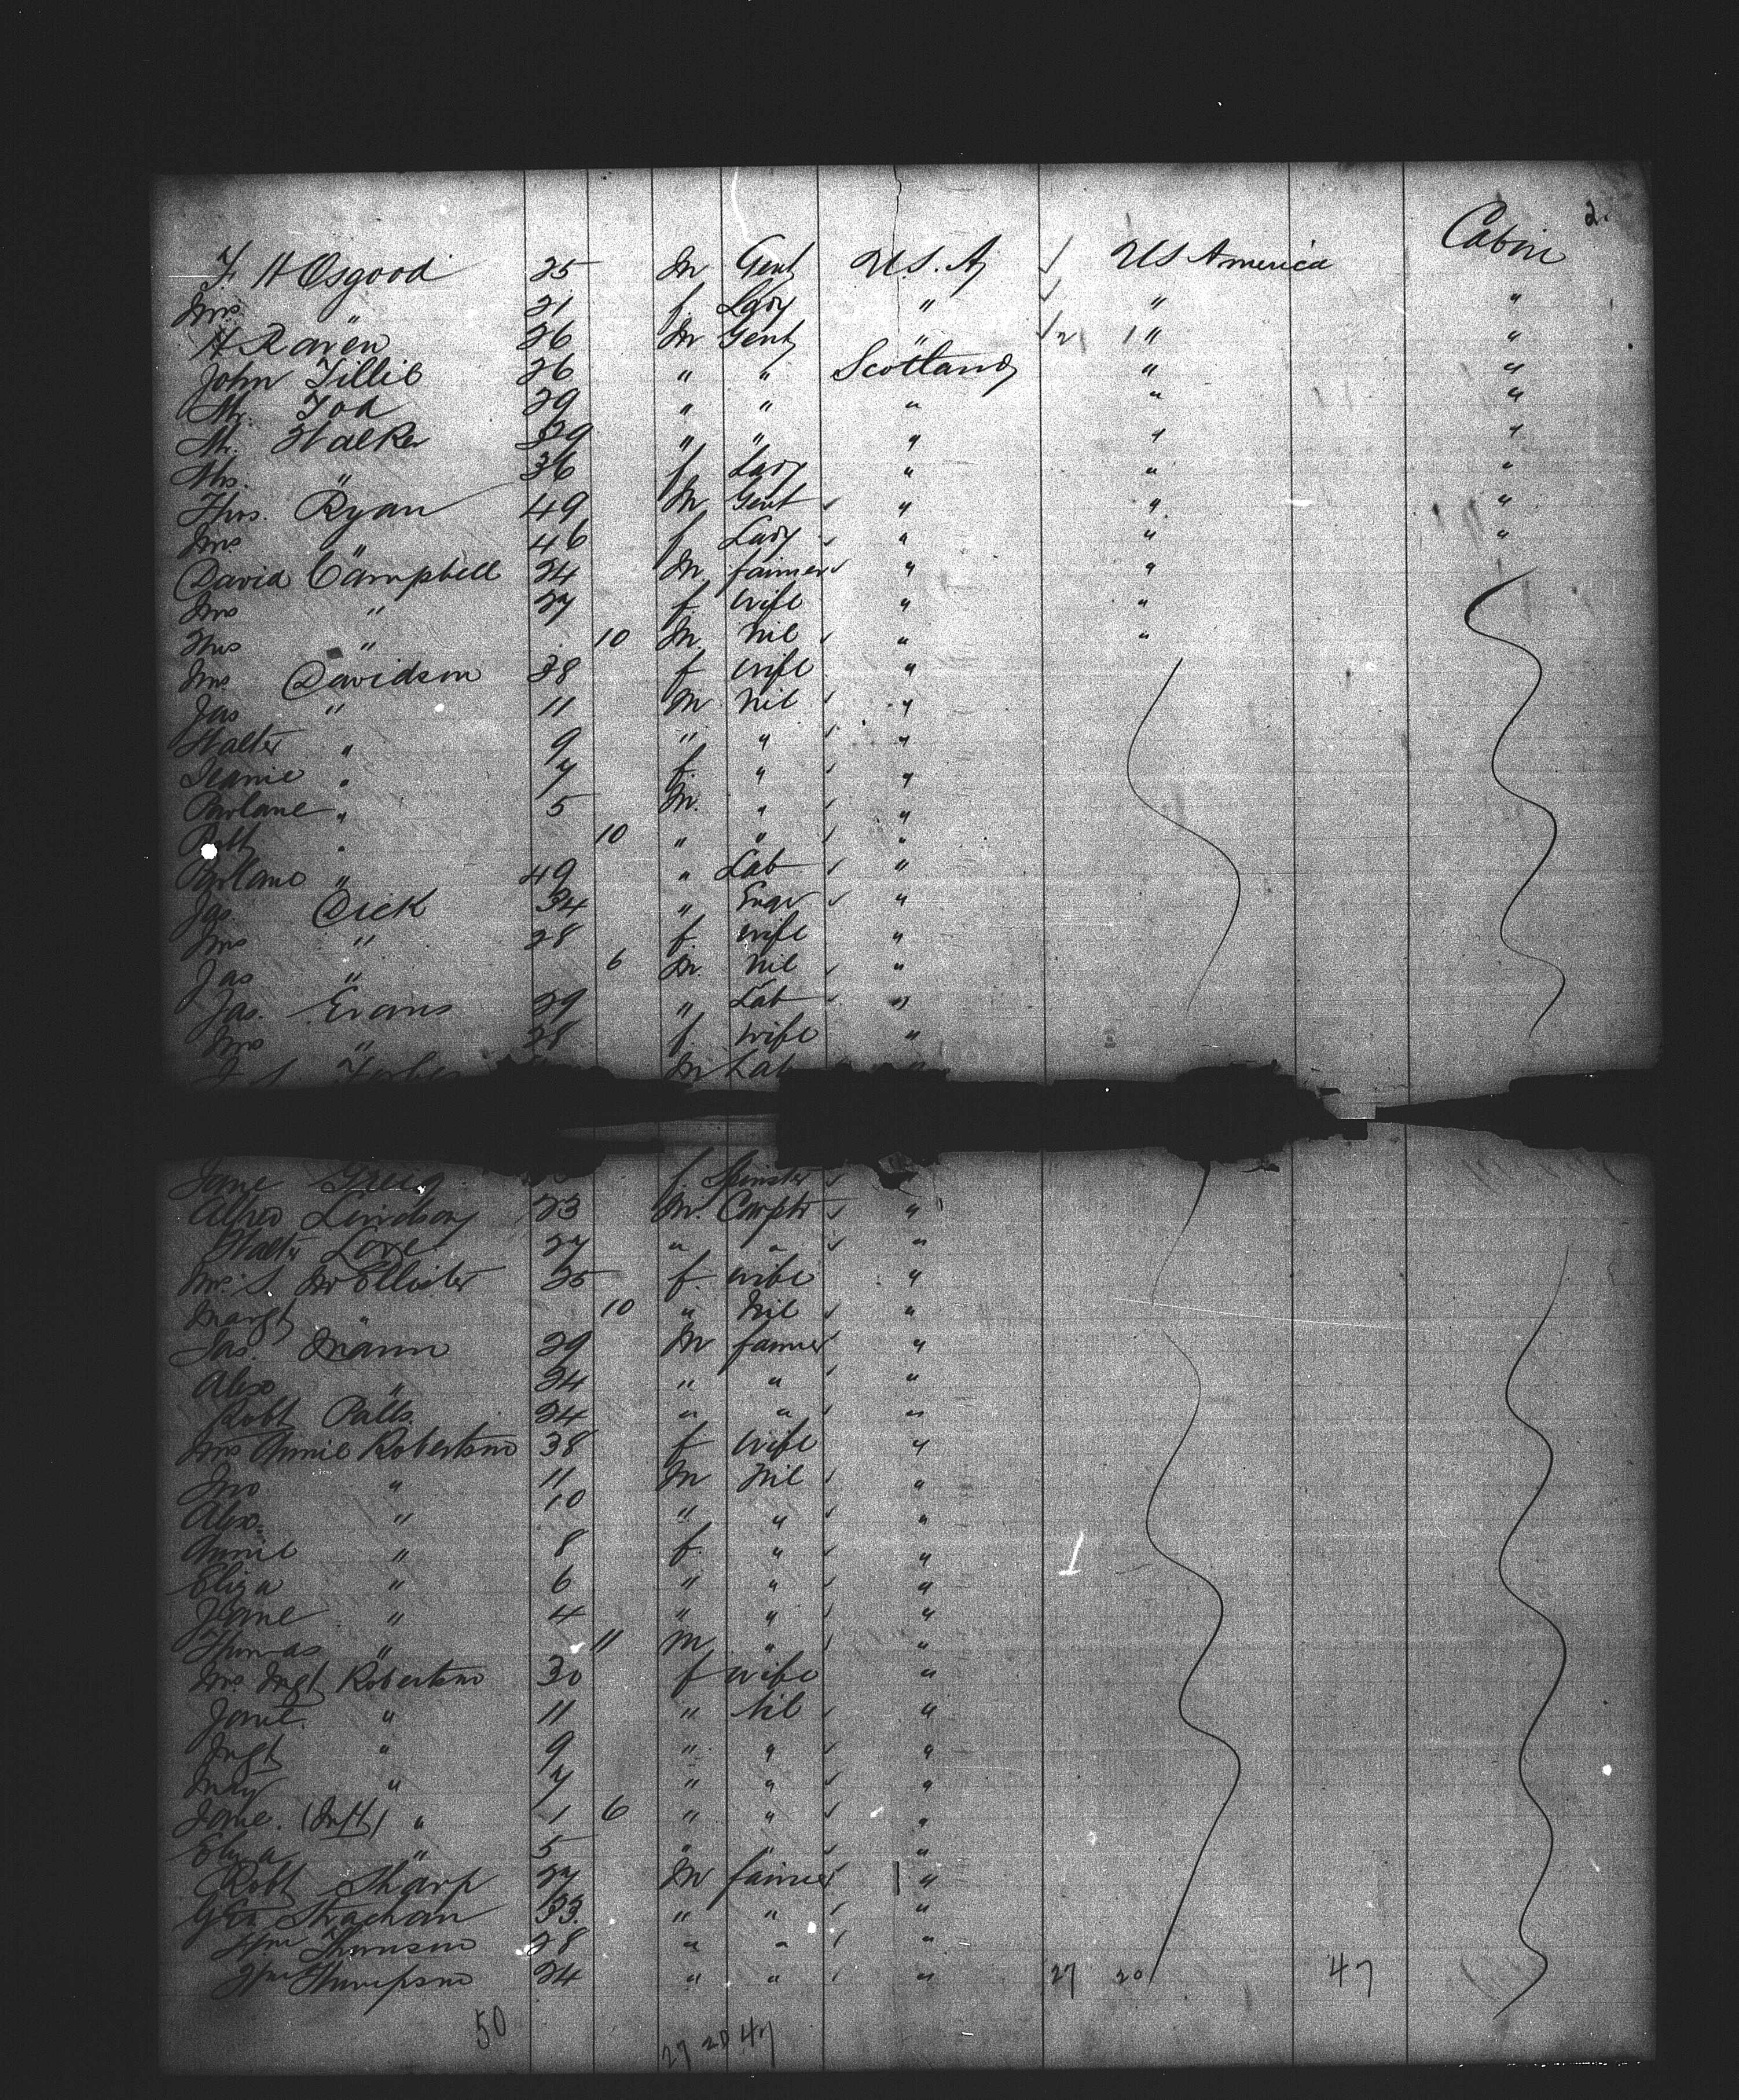 2.
Cabin
F H Osgood 25 M Gent U.S.A US America
Mrs " 21 f Lady " " "
H Raven 26 M Gent " " "
John Tillie 26 " " Scotland " "
Mr. Tod 29 " " " " "
Mr. Walker 29 " " " " "
Mrs. " 36 f Lady " " "
Thos. Ryan 49 M Gent " " "
Mrs " 46 f Lady " " "
David Campbell 24 M farmer " "
Mrs " 27 f wife " "
" 10 M Nil " "
Mrs Davidson 38 f wife "
Jas " 11 M Nil "
Walter " 9 " " "
Jeanie " 7 f " "
Parlane " 5 M. " "
" 10 " " "
Parlane " 49 " Lab "
Jas Dick 34 " Engr "
Mrs " 28 f wife "
Jas " 6 M Nil "
Jas. Evans 29 " Lab "
Mrs " 28 f wife "
Forbes M Lab "
Jane Greig f Spinster
Alfred Lindsay 23 M. Carptr "
Walter Love 27 " " "
Mrs. S. McEllister 25 f wife "
Margt " 10 " Nil "
Jas. Mann 29 M farmer "
Alex " 24 " " "
Robt Patts 24 " " "
Mrs Annie Robertson 38 f wife "
Jno " 11 M Nil "
Alex. " 10 " " "
Annie " 8 f " "
Eliza " 6 " " "
Jane " 4 " " "
Thomas " 11 M " "
Mrs Mgt Robertson 30 f wife "
Janet " 11 " Nil "
Mgt " 9 " " "
May " 7 " " "
Jane. (Inft) " 1 6 " " "
Eliza " 5 " " "
Robt Sharp 27 M farmer "
Geo Strachan 33. " " "
Wm Thomson 28 " " "
Wm Thompson 24 " " " 27 20 47
50 27 20 47